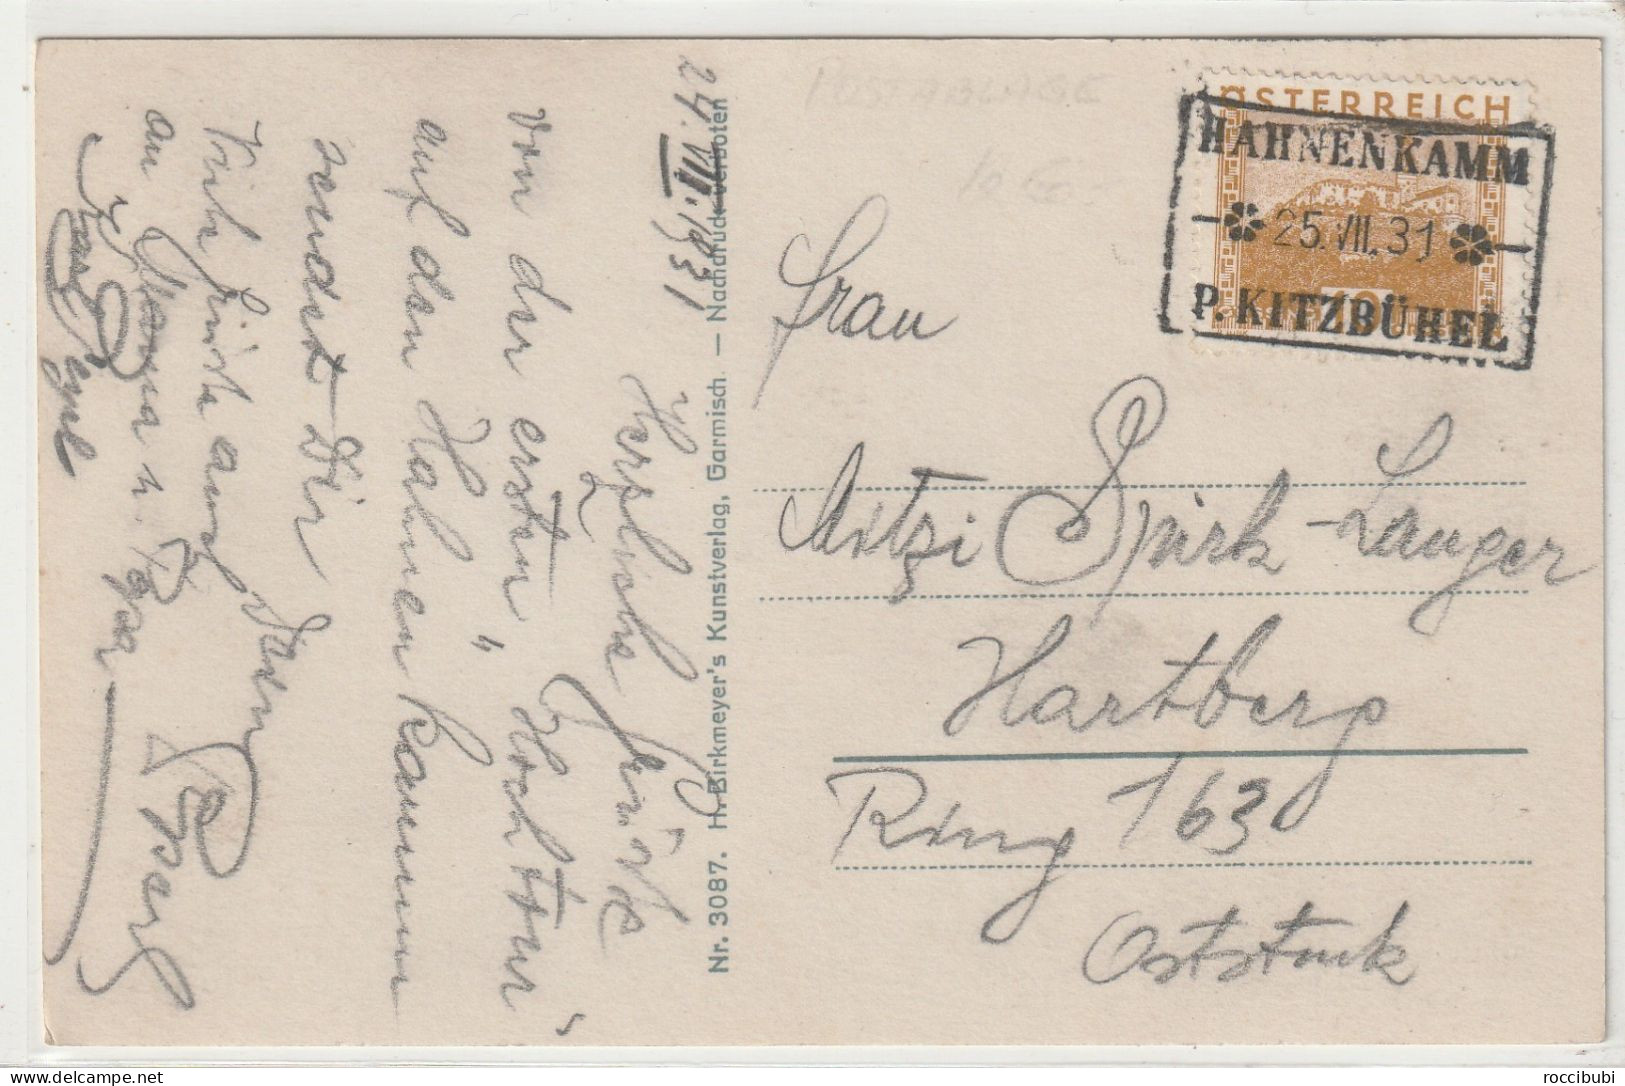 24.VII.1931
Herzliche Grüße
von der ersten „Hochtour“
auf den Hahnenkamm
sendet Dir
Viele Grüße auch
an Mama u. Papa
Nr. 3087. H. Birkmeyer's Kunstverlag, Garmisch. — Nachdruck verboten
POSTABLAGE
ÖSTERREICH
HAHNENKAMM
25.VII.31
P. KITZBÜHEL
Frau
Mitzi Spirk-Langer
Hartberg
Ring 163
Oststmk
roccibubi